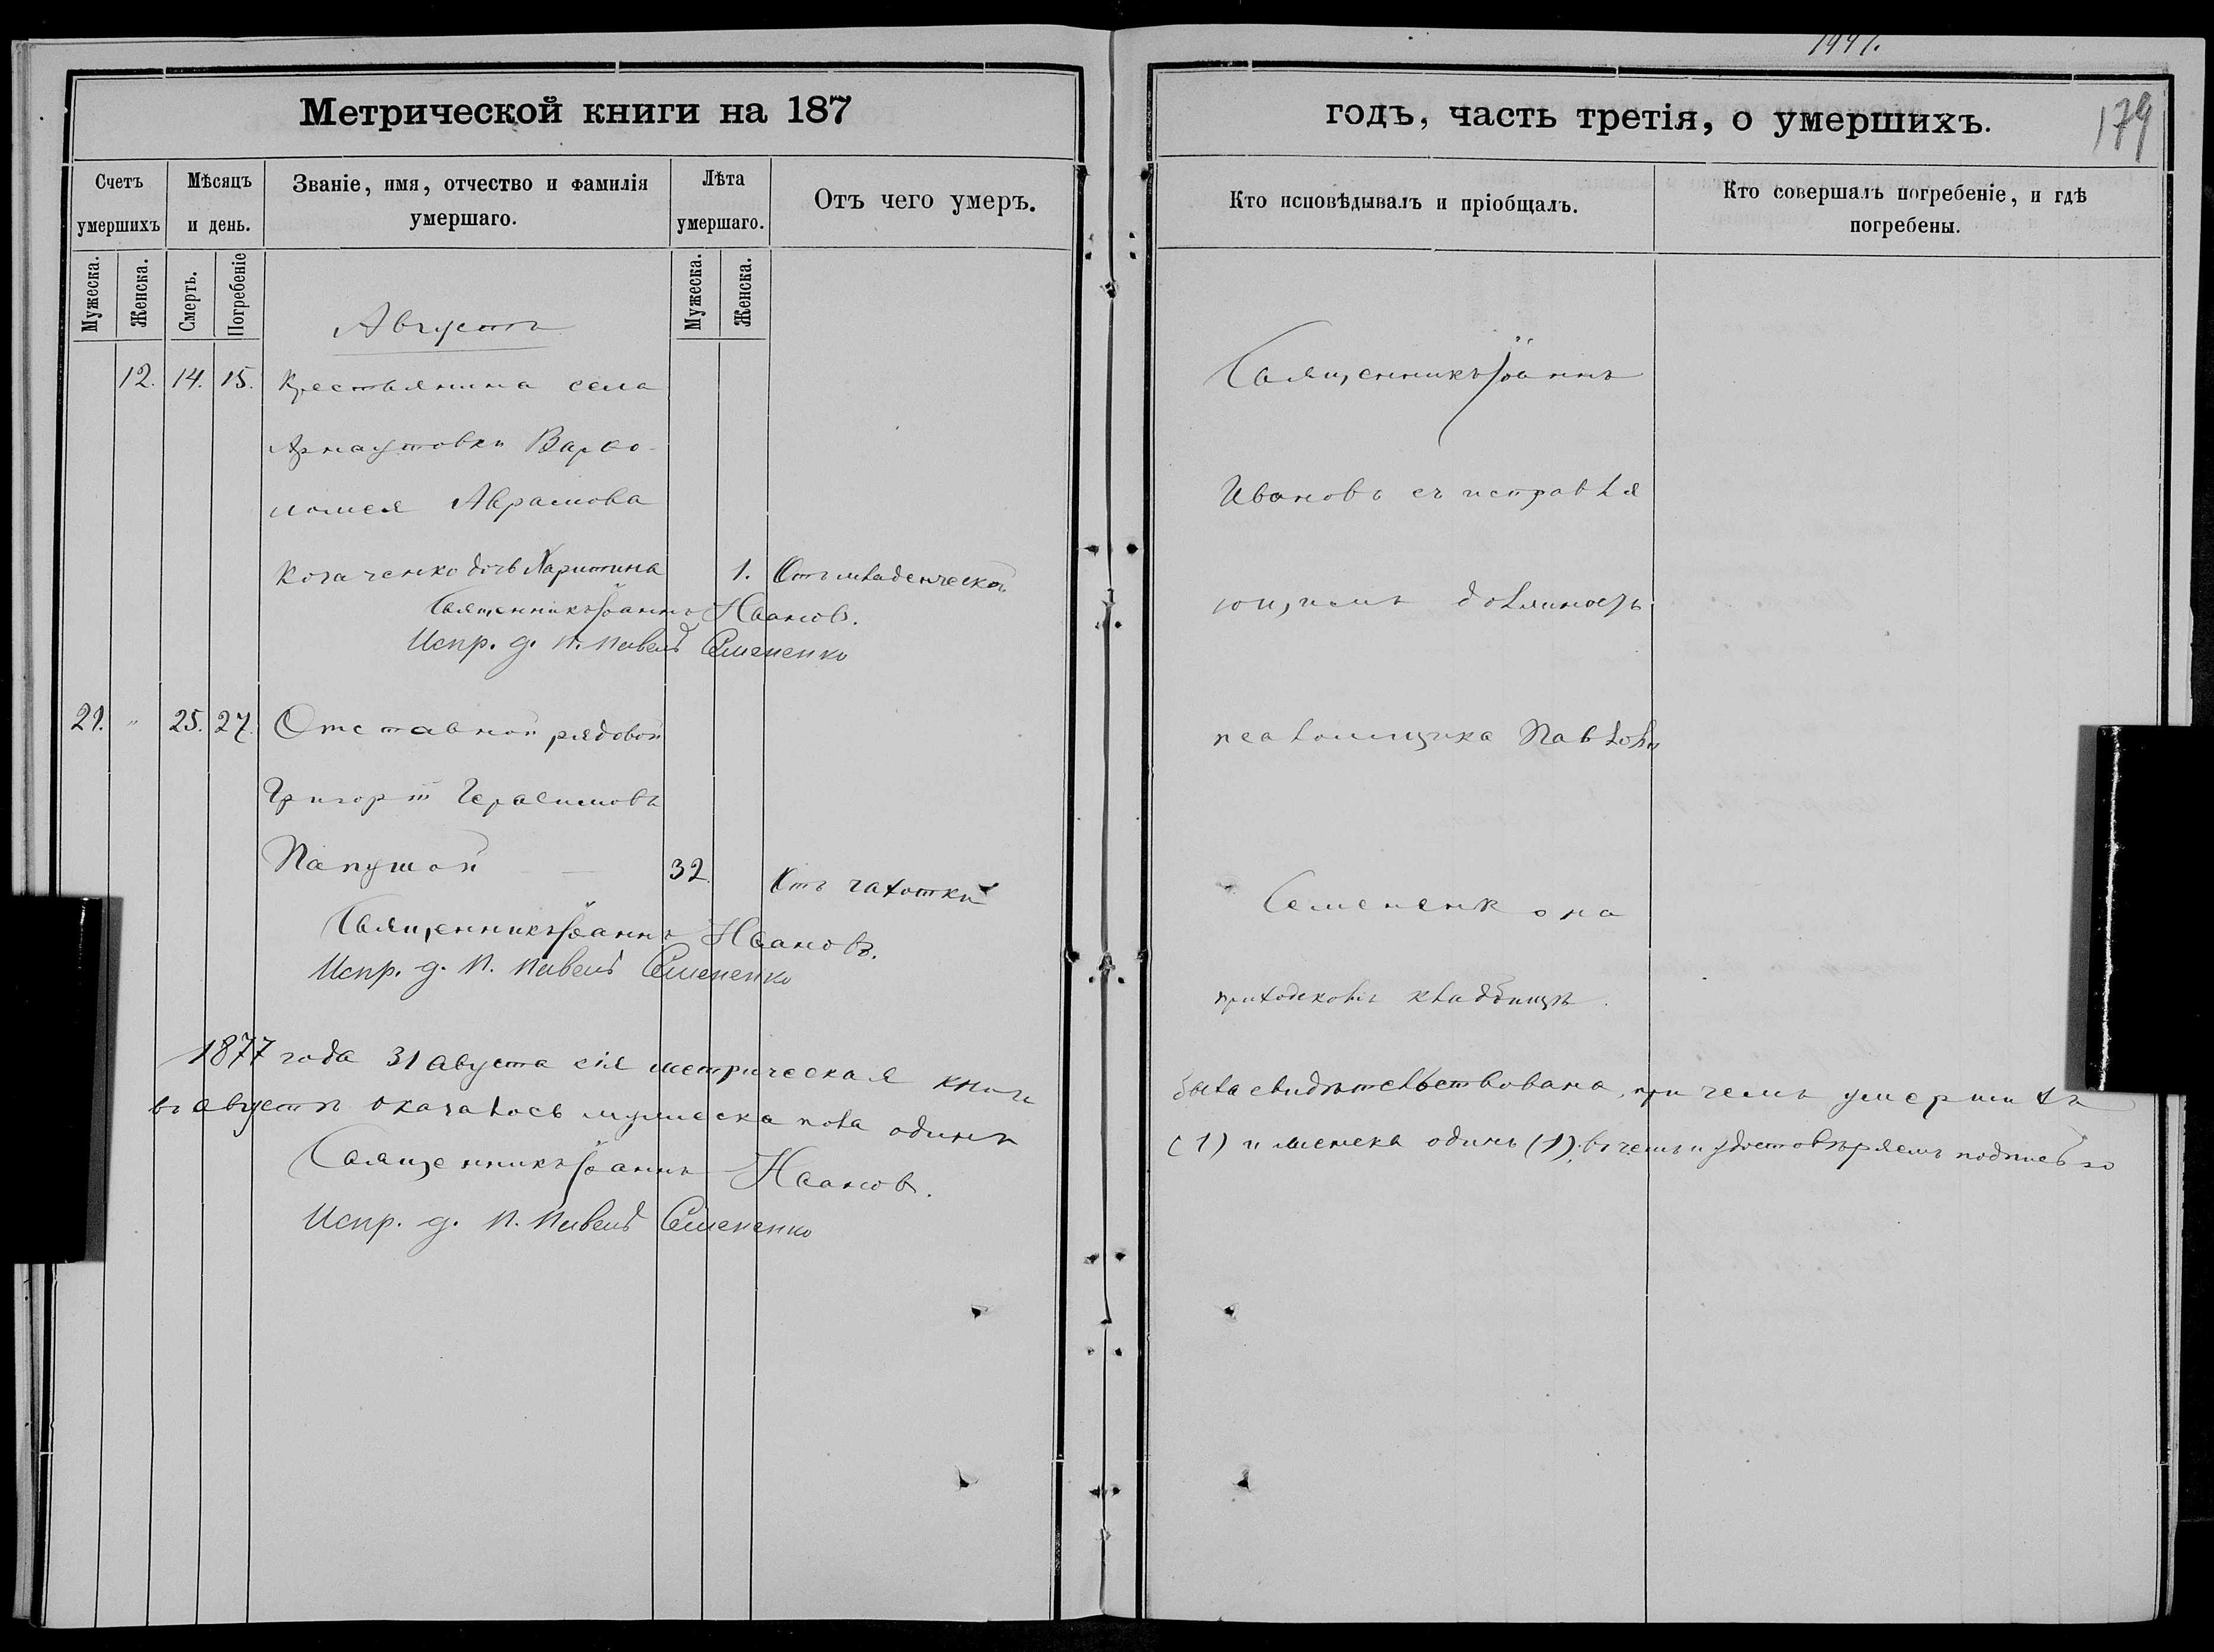 Метрической книги на 187
Счетъ умершихъ
Мѣсяцъ и день.
Званіе, имя, отчество и фамилія умершаго.
Лѣта умершаго.
Отъ чего умеръ.
Мужеска.
Женска.
Смерть.
Погребеніе
Мужеска.
Женска.
Августъ
12. 14. 15. Крестьянина села
Арнаутовки Варѳо-
ломея Аврамова
Козаченко дочь Харитина 1. Отъ младенческой
Священникъ Іоаннъ Ивановъ.
Испр. д. п. Павелъ Семененко
21. " 25. 27. Отставной рядовой
Григорій Герасимовъ
Папушой 32. Отъ чахотки
Священникъ Іоаннъ Ивановъ.
Испр. д. П. Павелъ Семененко
1877 года 31 августа сія метрическая книга
въ августѣ оказалось мужеска пола одинъ
Священникъ Іоаннъ Ивановъ.
Испр. д. П. Павелъ Семененко
годъ, часть третія, о умершихъ.
179
Кто исповѣдывалъ и пріобщалъ.
Кто совершалъ погребеніе, и гдѣ погребены.
Священникъ Іоаннъ
Ивановъ съ исправля
ющимъ должность
псаломщика Павломъ
Семененко на
приходскомъ кладбищѣ.
была свидѣтельствована, при чемъ умершихъ
(1) и женска одинъ (1), въ чемъ и удостовѣряемъ подписью